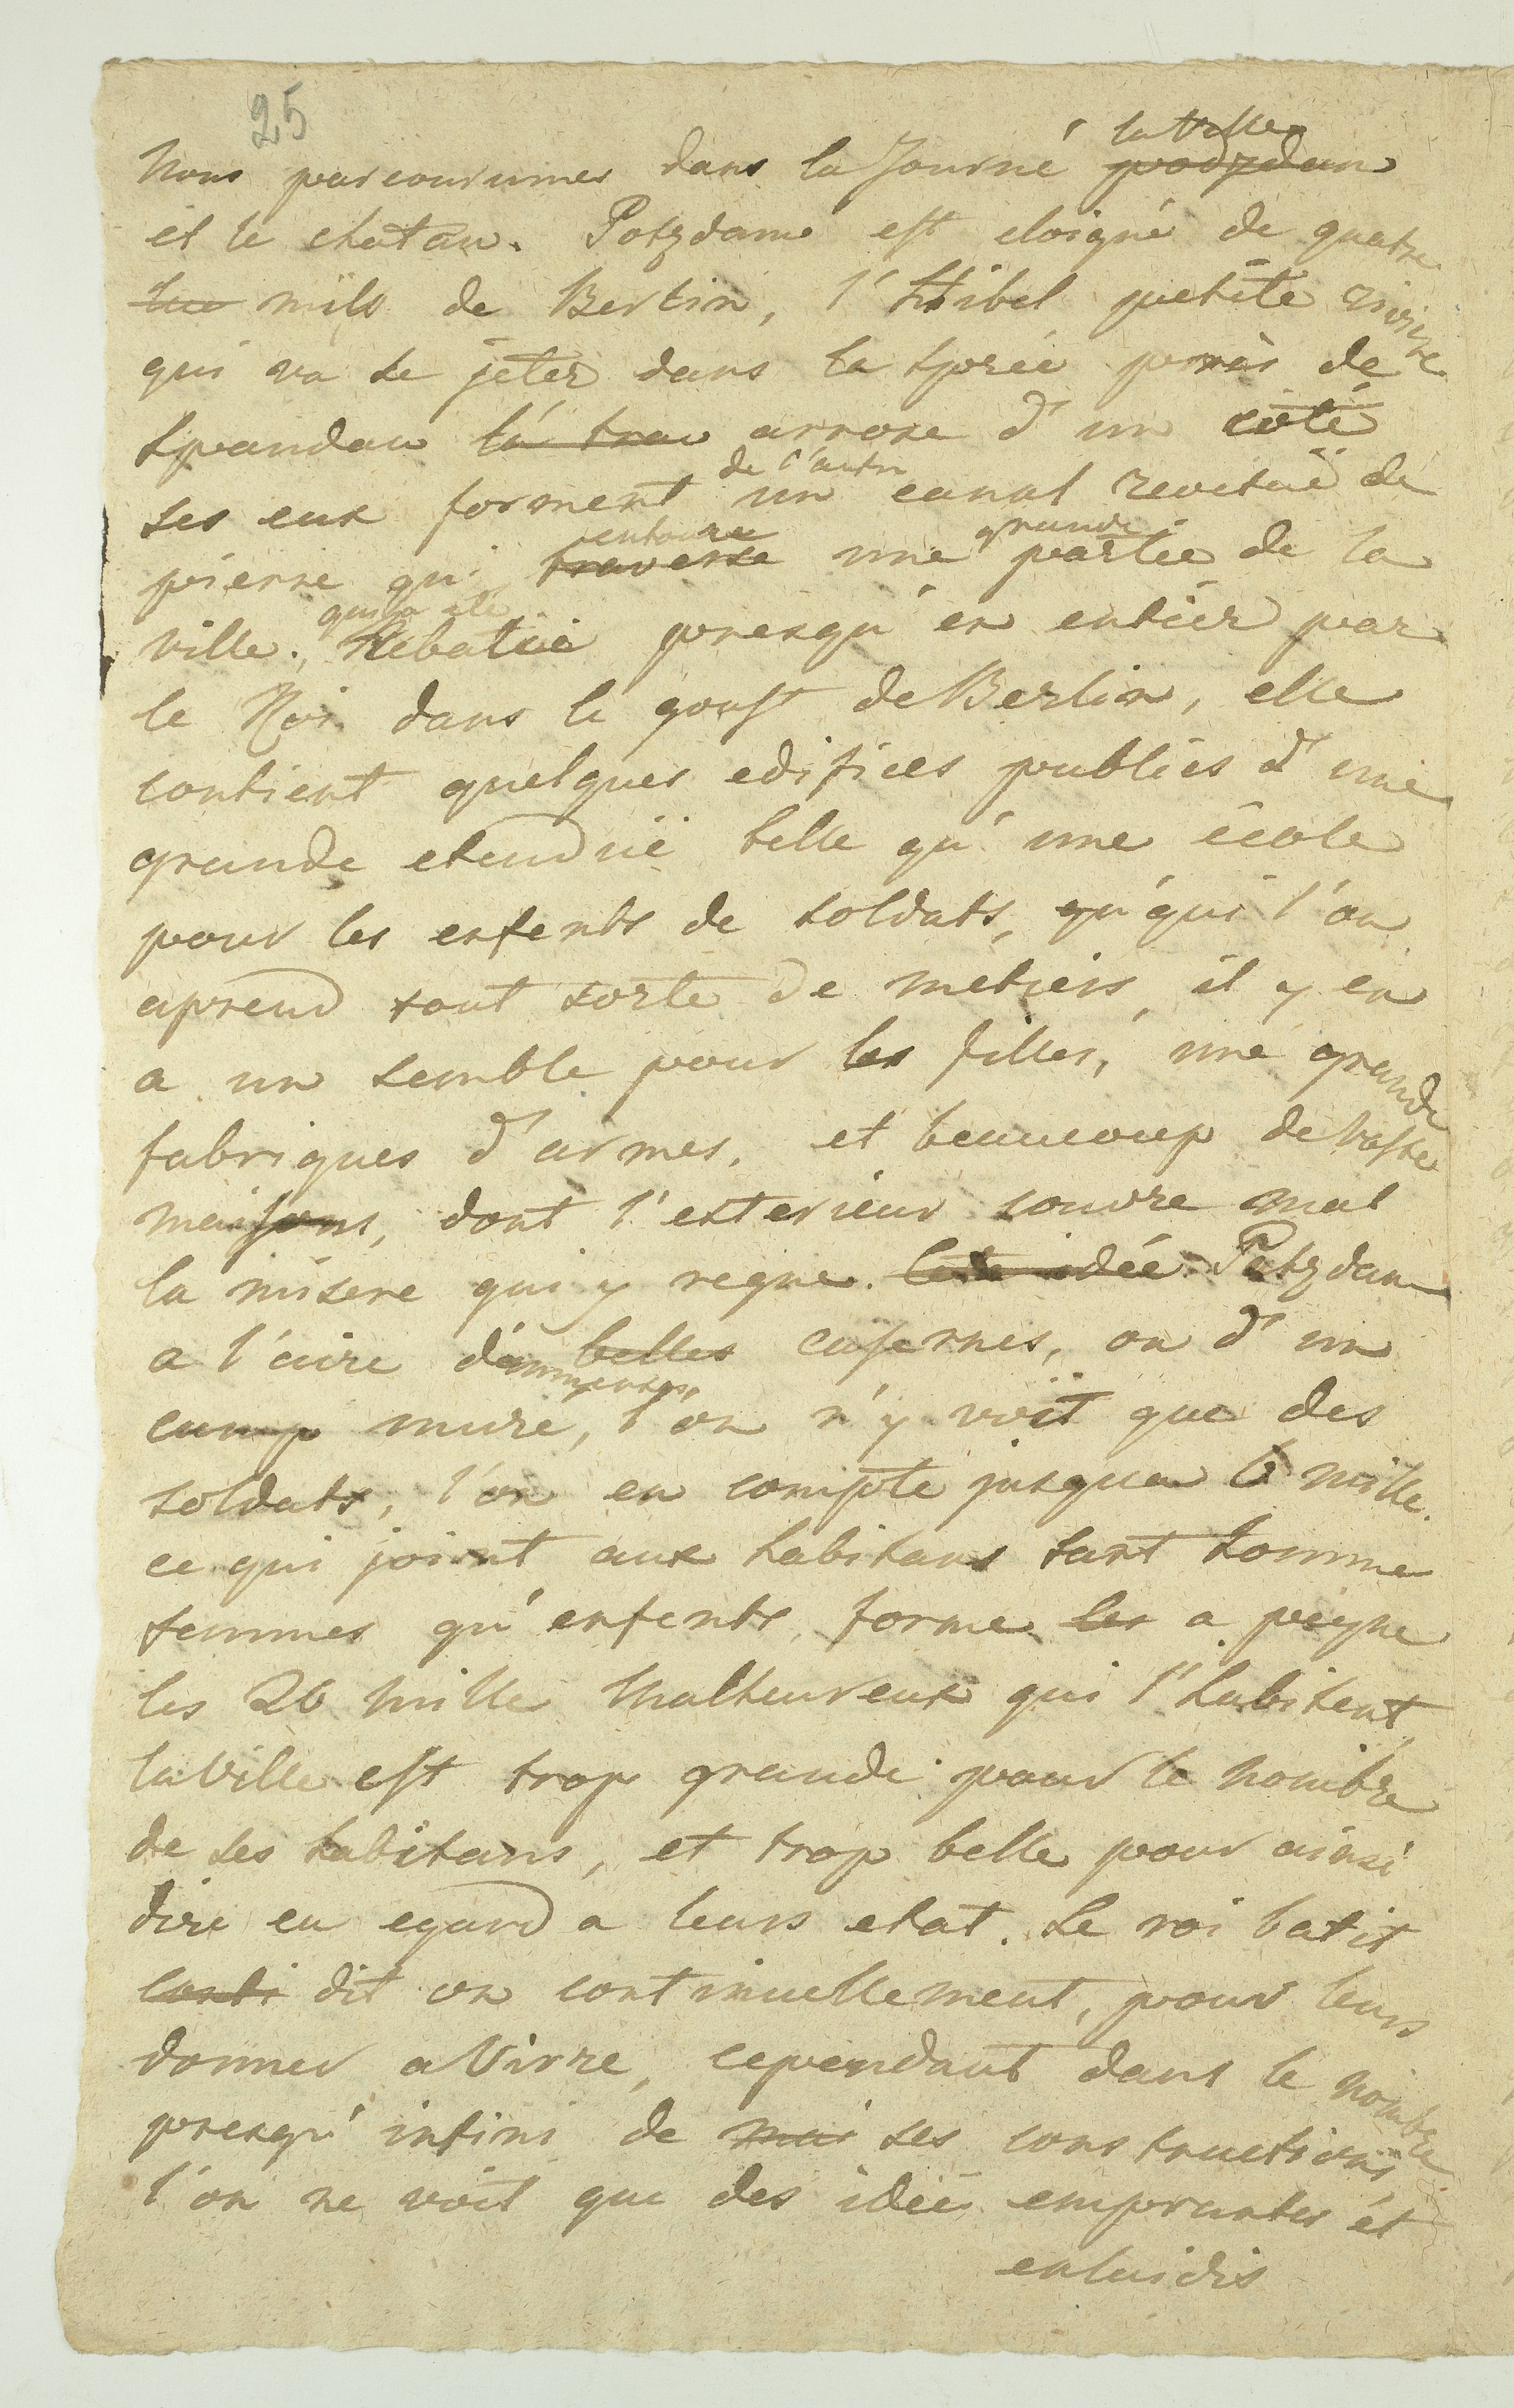 25
la Ville
Nous parcourumes dans la Journé podzdam
et le chatau. Potzdame est eloigné de quatre
lue mils de Berlin, l'Hibel petite riviere
qui va se jeter dans la sprée prais de
Spandau la trav arrose d'un coté
de l'autre
ses eux forment un canal revetuë de
entoure grande
pierre qui traverse une partie de la
qui a ete
ville. Rebatie presqu'en entier par
le Roi dans le goust de Berlin, elle
contient quelques edifices publics d'une
grande etenduë telle qu'une école
pour les enfents de soldats, qu'qui l'on
aprend tout sorte de metiers, il y en
a un semble pour les filles, une grande
fabriques d'armes, et beaucoup de vaste
maisons, dont l'exterieur couvre mal
la misere qui y regne. Cete idée Potzdam
a l'aire d'immenses belles casernes, ou d'un
camp muré, l'on n'y voit que des
soldats, l'on en compte jusqua 6 mille.
ce qui joient aux habitans tant homme
femmes qu'enfents, forme les a peigne
les 26 mille Malheureux qui l'habitent,
la Ville est trop grande pour le nombre
de ses habitans, et trop belle pour ainsi
dire eu egard a leurs etat. Le roi batit
conti dit on continuellement, pour leurs
donner a Vivre, cependant dans le nombre
presqu'infini de mai ses constructions,
l'on ne voit que des idées empruntes et
enlaidis